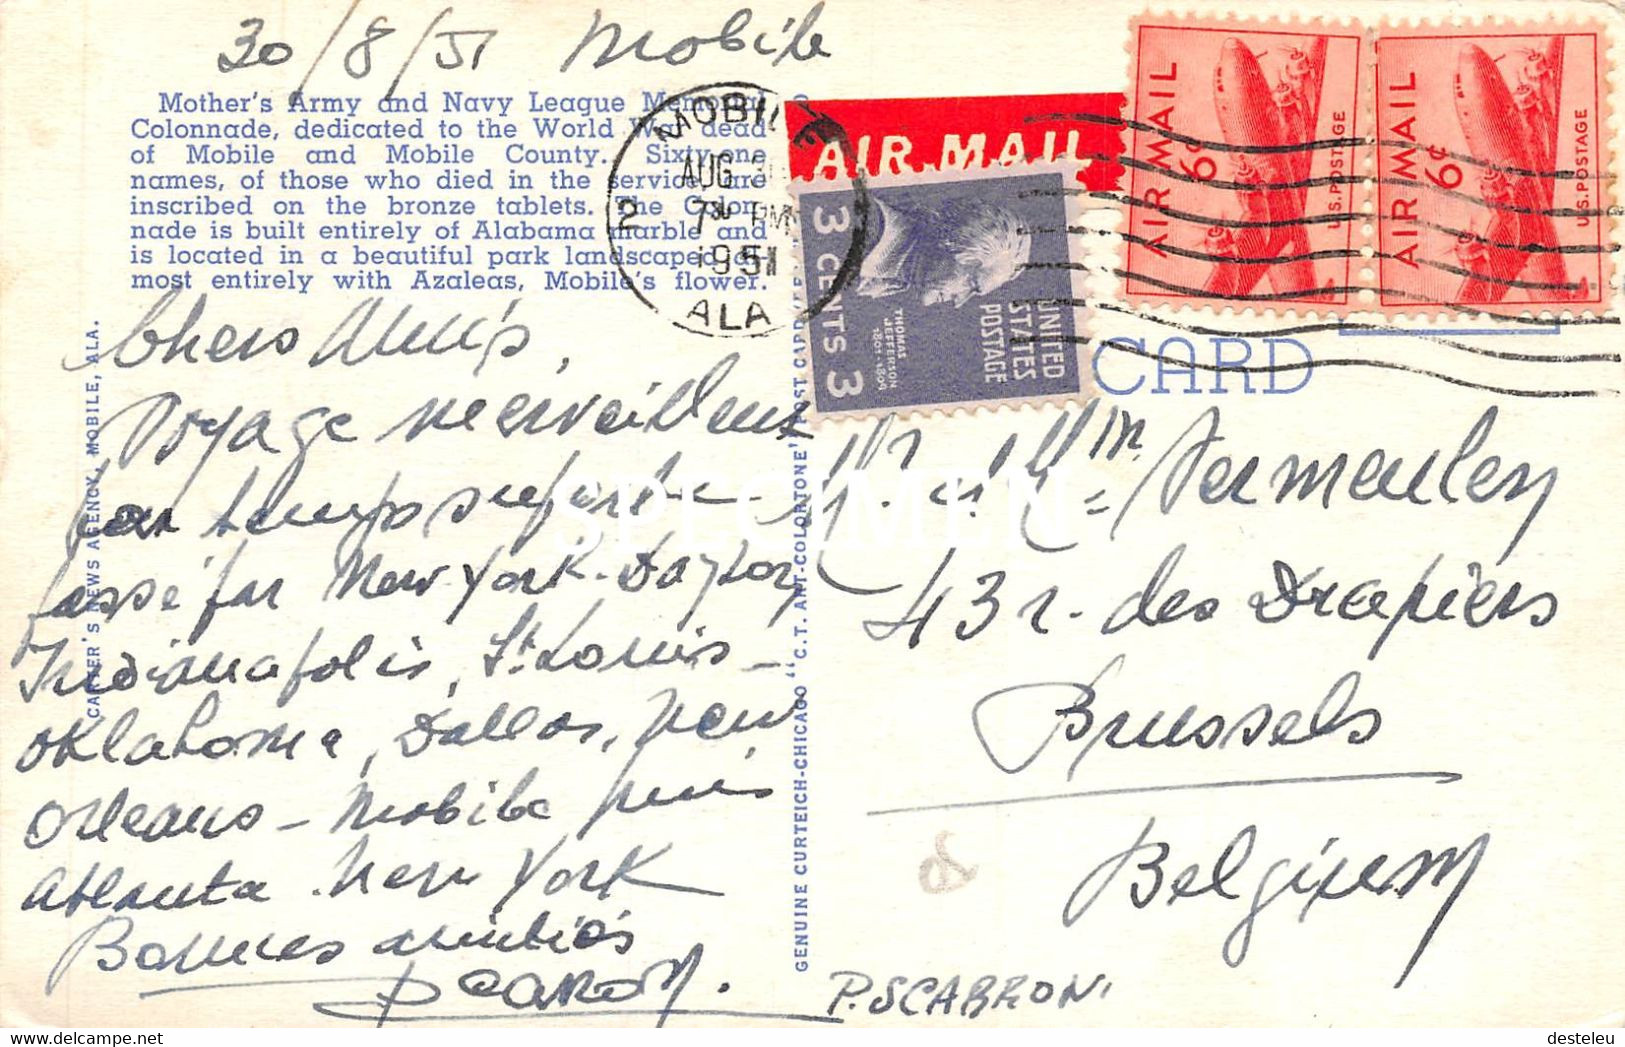 30/8/51 Mobile
Mother's Army and Navy League Memorial
Colonnade, dedicated to the World War dead
of Mobile and Mobile County. Sixty-one
names, of those who died in the service, are
inscribed on the bronze tablets. The Colon-
nade is built entirely of Alabama marble and
is located in a beautiful park landscaped al-
most entirely with Azaleas, Mobile's flower.
MOBILE
AUG 30
2 7 30 PM
1951
ALA
AIR MAIL
AIR MAIL
6¢
U.S. POSTAGE
AIR MAIL
6¢
U.S. POSTAGE
3 CENTS 3
THOMAS
JEFFERSON
1801-1809
UNITED
STATES
POSTAGE
CARD
Chers Amis,
Voyage merveilleux
par temps superbe
passé par New York. Daylon
Indianapolis, St. Louis -
Oklahoma, Dallas, New
Orleans - Mobile puis
Atlanta. New York
Bonnes amitiés
P. SCABRONI
Mr. & Mme Vermeulen
43 r. des Drapiers
Brussels
Belgium
CARTER'S NEWS AGENCY, MOBILE, ALA.
GENUINE CURTEICH-CHICAGO "C.T. ART-COLORTONE" POST CARD
SPECIMEN
delcampe.net
desteleu